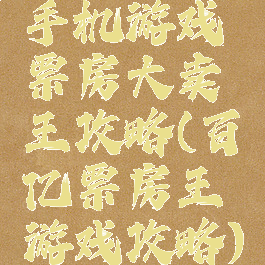 手机游戏
票房大卖
王攻略(百
亿票房王
游戏攻略)